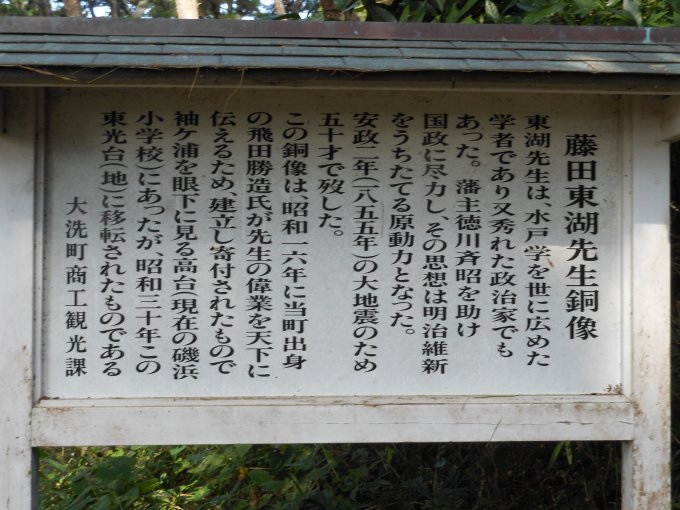 藤田東湖先生銅像
東湖先生は、水戸学を世に広めた
学者であり又秀れた政治家でも
あった。藩主徳川斉昭を助け
国政に尽力し、その思想は明治維新
をうちたてる原動力となった。
安政二年(一八五五年)の大地震のため
五十才で歿した。
この銅像は、昭和一六年に当町出身
の飛田勝造氏が先生の偉業を天下に
伝えるため、建立し寄付されたもので
袖ケ浦を眼下に見る高台(現在の磯浜
小学校)にあったが、昭和三十年この
東光台(地)に移転されたものである
大洗町商工観光課